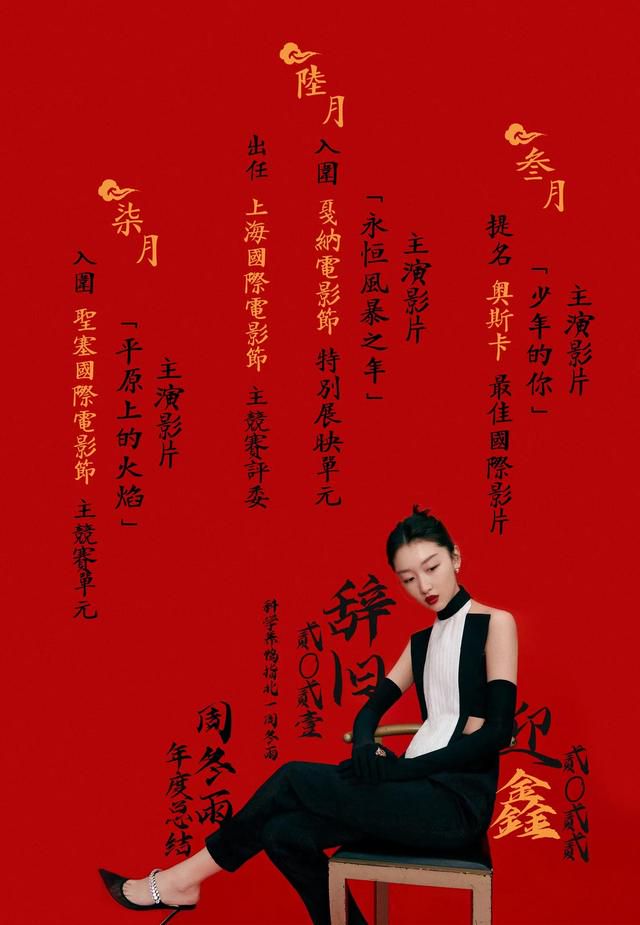 叁月
主演影片
「少年的你」
提名 奥斯卡 最佳國際影片
陸月
主演影片
「永恒風暴之年」
入圍 戛納電影節 特別展映單元
出任 上海國際電影節 主競賽評委
柒月
主演影片
「平原上的火焰」
入圍 聖塞國際電影節 主競賽單元
辞旧
貳〇貳壹
迎鑫
貳〇貳貳
科学养鸭指北一周冬雨
周冬雨
年度总结